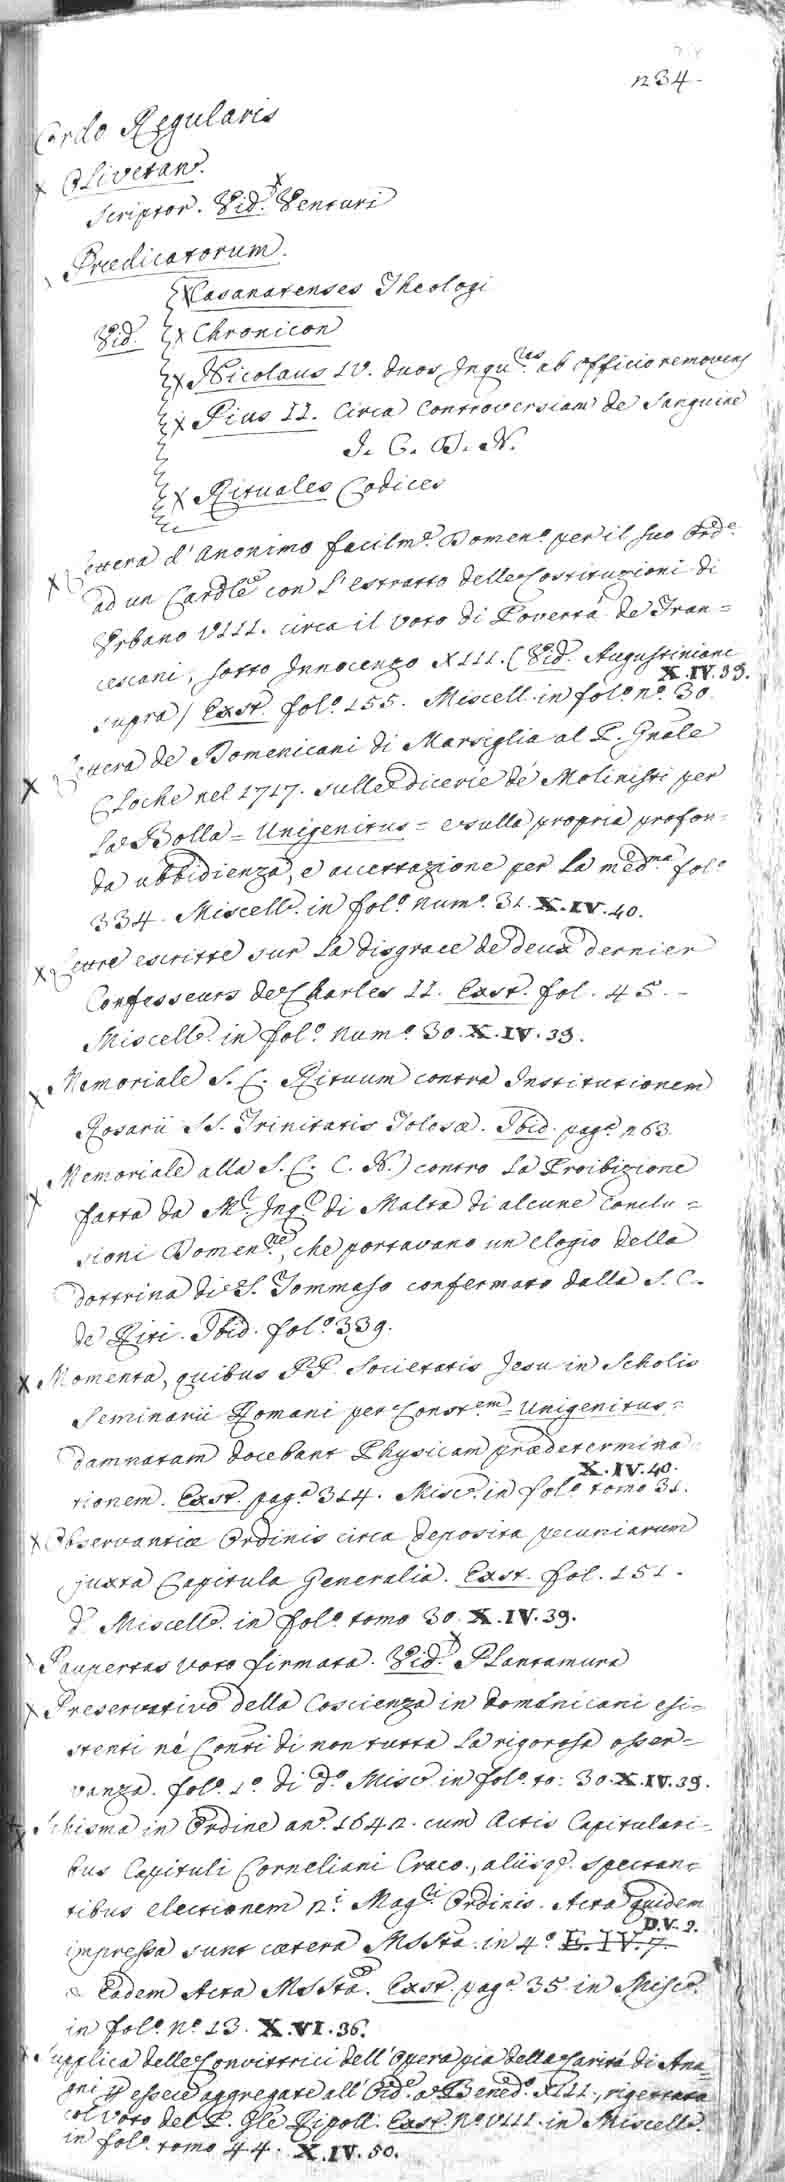 234.
Ordo Regularis
Olivetan.
Scriptor. Vid. Venturi
Prædicatorum.
Casanatenses Theologi
Vid. Chronicon
Nicolaus IV. duos Inqu.res ab officio removens
Pius II. Circa Controversiam de Sanguine
J. C. D. N.
Rituales Codices
Lettera d'Anonimo facilm.e Domen.o per il suo Ord.e
ad un Cardle con l'estratto delle Costituzioni di
Urbano VIII. circa il voto di Povertà de Fran=
cescani, sotto Innocenzo XIII. (Vid. Augustiniani
X.IV.39.
supra) Exst. fol.o 155. Miscell. in fol.o n.o 30.
Lettera de Domenicani di Marsiglia al P. Gnãle
Cloche nel 1717. sulle dicerie de' Molinisti per
la Bolla = Unigenitus = e sulla propria profon=
da ubbidienza, e accettazione per la med.ma fol.o
334. Miscell. in fol.o num.o 31. X.IV.40.
Lettre escritte sur la disgrace de deux dernier
Confesseurs de Charles II. Exst. fol. 45.
Miscell. in fol.o num.o 30. X.IV.39.
Memoriale S. C. Rituum contra Institutionem
Rosarii SS. Trinitatis Tolosæ. Ibid. pag.a 263.
Memoriale alla S. C. C. N.) contro la Proibizione
fatta da M.r Inq.re di Malta di alcune Conclu=
sioni Domen.ne, che portavano un elogio della
dottrina di S. Tommaso confermato dalla S. C.
de Riti. Ibid. fol.o 339.
Momenta, quibus PP. Societatis Jesu in Scholis
Seminarii Romani per Const.em = Unigenitus =
damnatam docebant Physicam prædetermina=
X.IV.40.
tionem. Exst. pag.a 314. Misc. in fol.o tomo 31.
Observantiæ Ordinis circa deposita pecuniarum
juxta Capitula Generalia. Exst. fol. 151.
d.o Miscell. in fol.o tomo 30. X.IV.39.
Paupertas voto firmata. Vid. Plantamura
Preservativo della Coscienza in domenicani esi=
stenti né Conti di non tutta la rigorosa osser=
vanza. fol.o 1.o di d.o Misc. in fol.o to: 30. X.IV.39.
Schisma in Ordine an.o 1642. cum Actis Capitulari=
bus Capituli Corneliani Craco., aliisq. spectan=
tibus electionem n.i Mag.ri Ordinis. Acta quidem
D.V.2.
impressa sunt cætera MSSta. in 4.o E.IV.7.
Eadem Acta MSSta. Exst. pag.a 35. in Misc.
in fol.o n.o 13. X.VI.36.
Supplica delle Convittrici dell'Opera pia della Carità di Ana=
gni p essere aggregate all'Ord.e a Bened.o XIII., rigettata
col voto del P. Gle Ripoll. Exst. n.o VIII. in Miscell.
in fol.o tomo 44. X.IV.50.